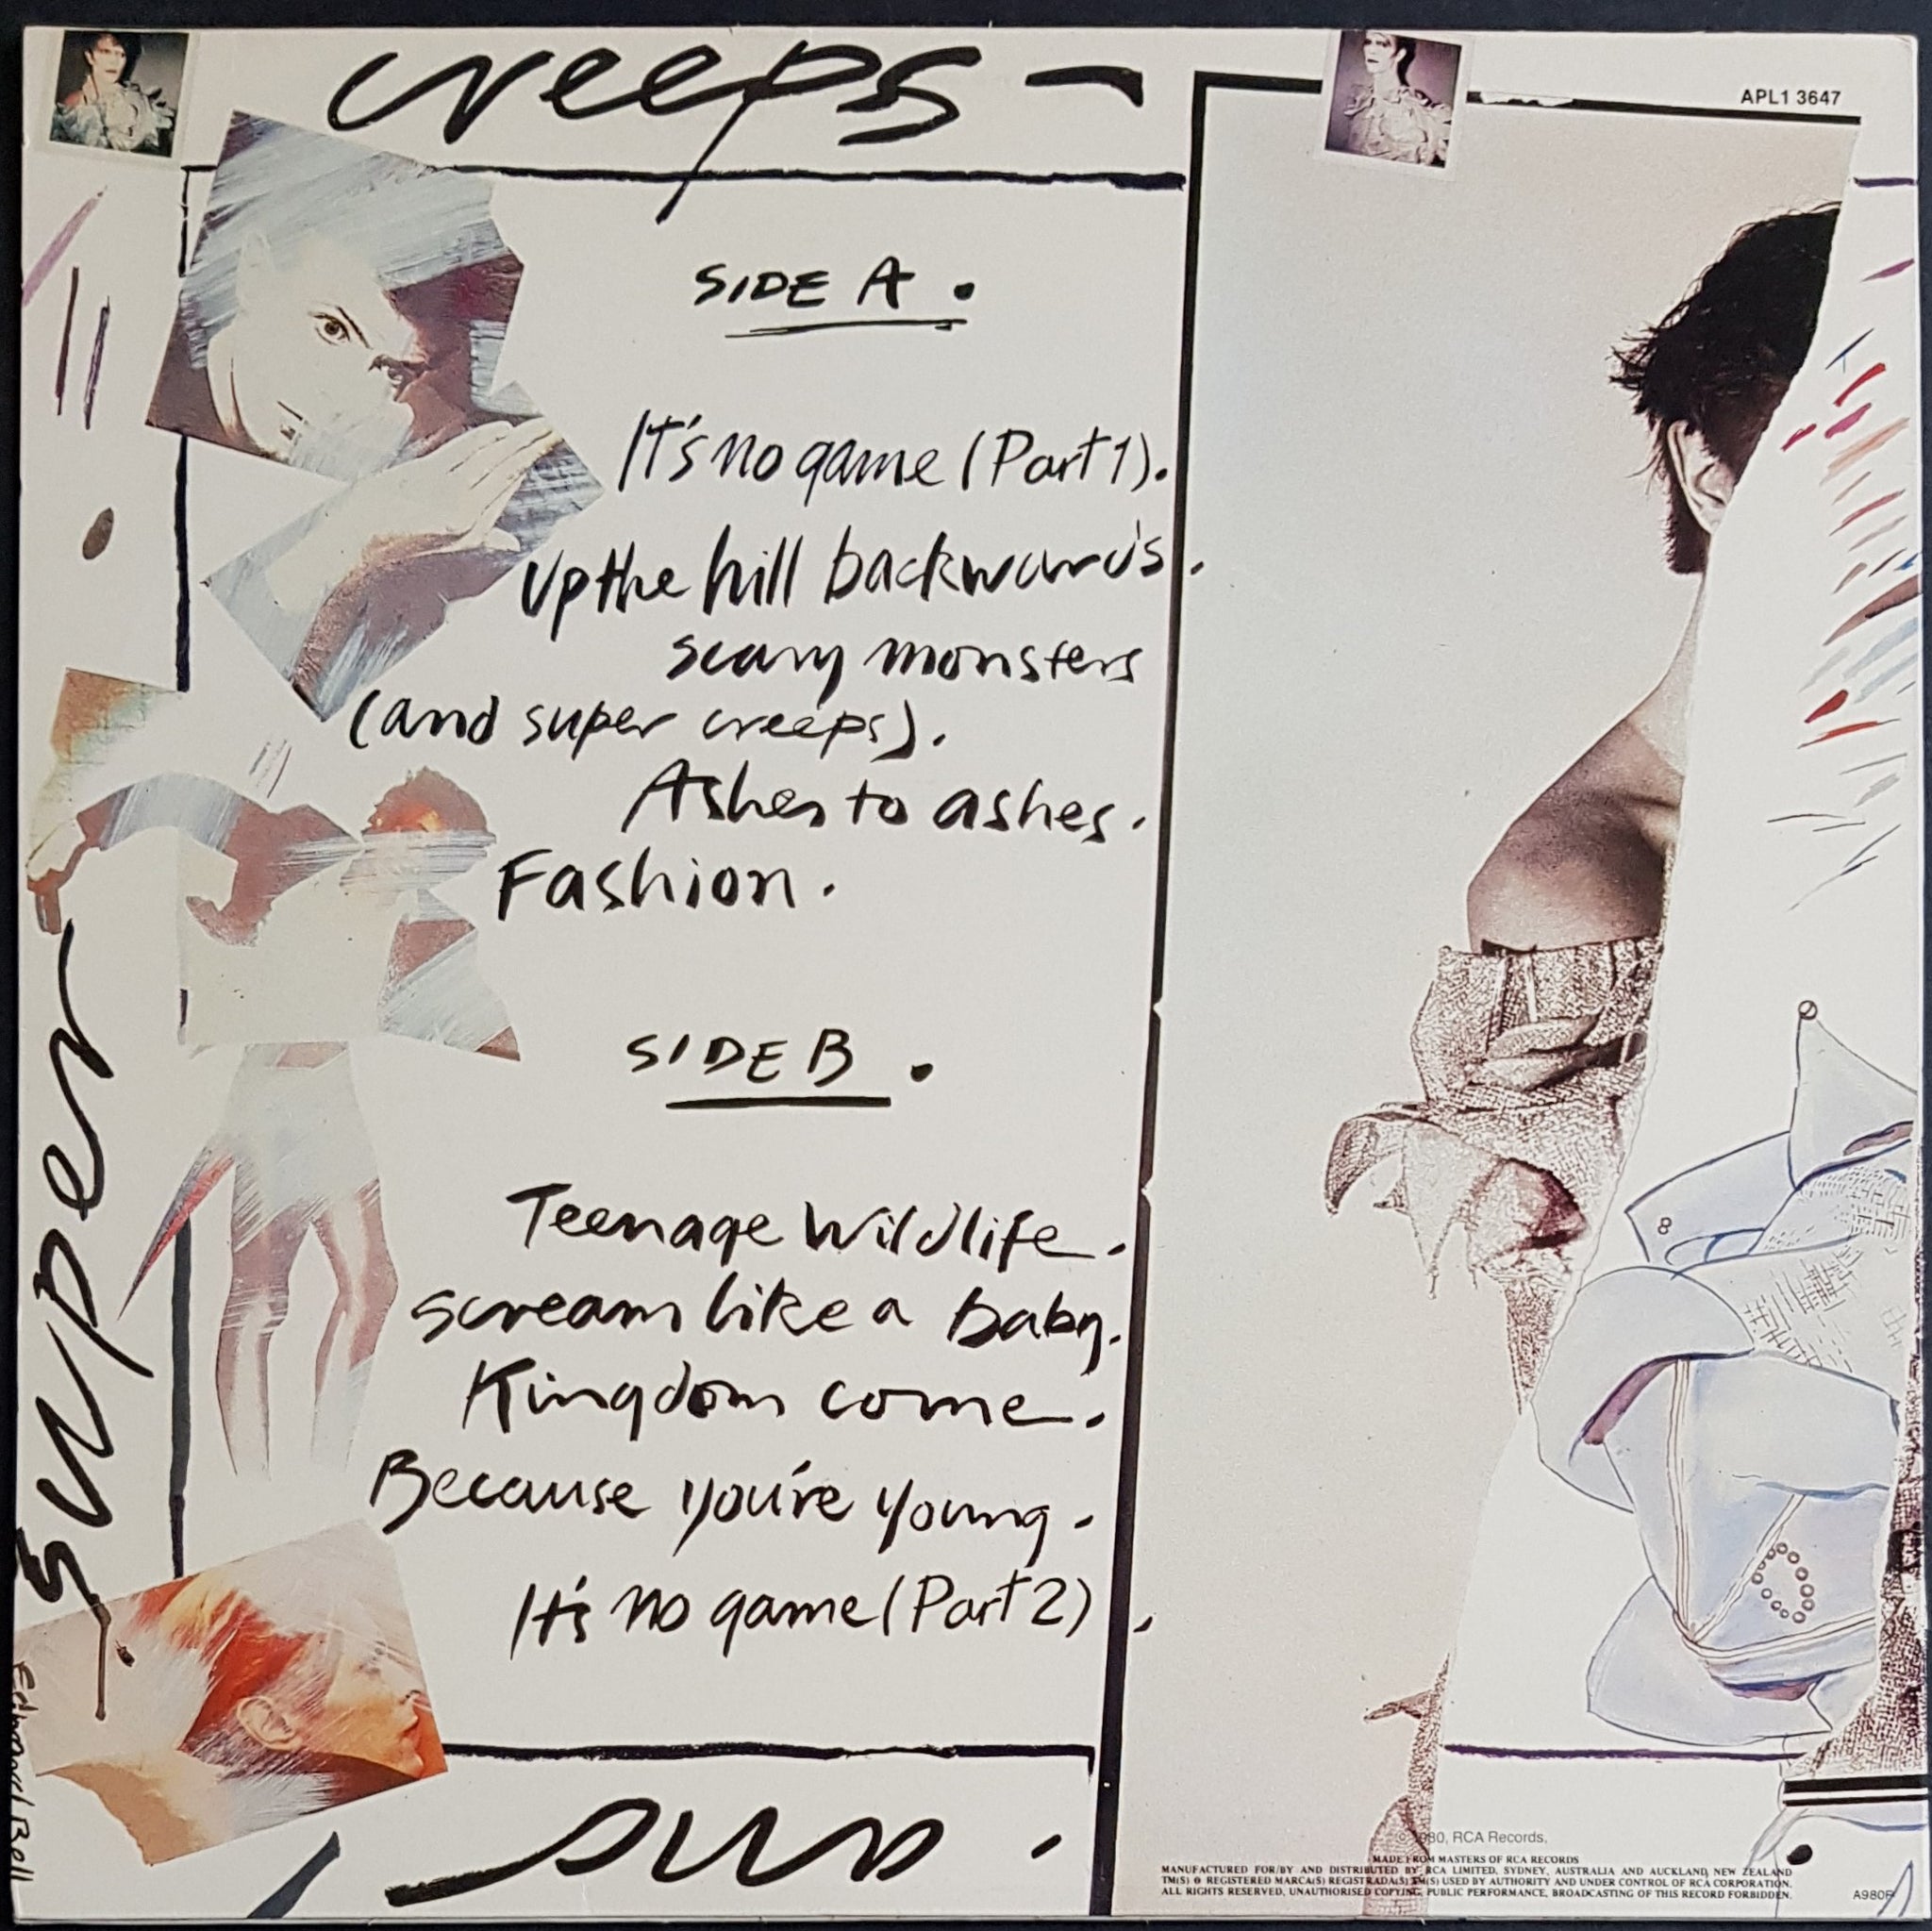 creeps -
APL1 3647
SIDE A.
It's no game (Part 1).
Up the hill backwards.
scary monsters
(and super creeps).
Ashes to ashes.
Fashion.
SIDE B.
Teenage Wildlife.
scream like a baby.
Kingdom come.
Because you're young.
It's no game (Part 2).
super
Edward Bell
8
1980, RCA Records,
MADE FROM MASTERS OF RCA RECORDS
MANUFACTURED FOR/BY AND DISTRIBUTED BY RCA LIMITED, SYDNEY, AUSTRALIA AND AUCKLAND, NEW ZEALAND
TM(S) ® REGISTERED MARCA(S) REGISTRADA(S) TM(S) USED BY AUTHORITY AND UNDER CONTROL OF RCA CORPORATION.
ALL RIGHTS RESERVED, UNAUTHORISED COPYING, PUBLIC PERFORMANCE, BROADCASTING OF THIS RECORD FORBIDDEN.